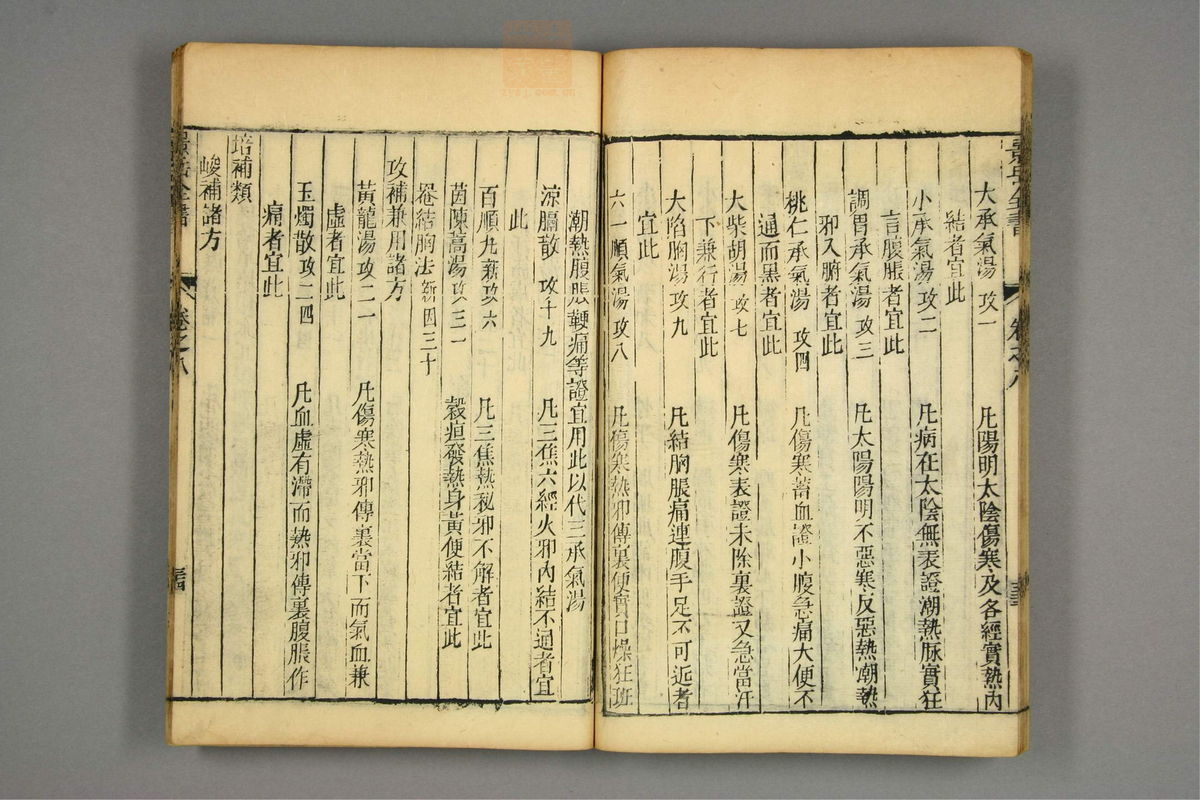 景岳全書 卷之八
大承氣湯 攻一 凡陽明太陰傷寒及各經實熱內
結者宜此
小承氣湯 攻二 凡病在太陰無表證潮熱脉實狂
言腹脹者宜此
調胃承氣湯 攻三 凡太陽陽明不惡寒反惡熱潮熱
邪入腑者宜此
桃仁承氣湯 攻四 凡傷寒蓄血證小腹急痛大便不
通而黑者宜此
大柴胡湯 攻七 凡傷寒表證未除裏證又急當汗
下兼行者宜此
大陷胸湯 攻九 凡結胸脹痛連腹手足不可近者
宜此
六一順氣湯 攻八 凡傷寒熱邪傳裏便實口燥狂班
潮熱腹脹鞕痛等證宜用此以代三承氣湯
涼膈散 攻十九 凡三焦六經火邪內結不通者宜
此
百順丸 新攻六 凡三焦熱秘邪不解者宜此
茵陳蒿湯 攻三一 穀疸發熱身黃便結者宜此
罨結胸法 新四三十
攻補兼用諸方
黃龍湯 攻二一 凡傷寒熱邪傳裏當下而氣血兼
虛者宜此
玉燭散 攻二四 凡血虛有滯而熱邪傳裏腹脹作
痛者宜此
培補類
峻補諸方
景岳全書 卷之八